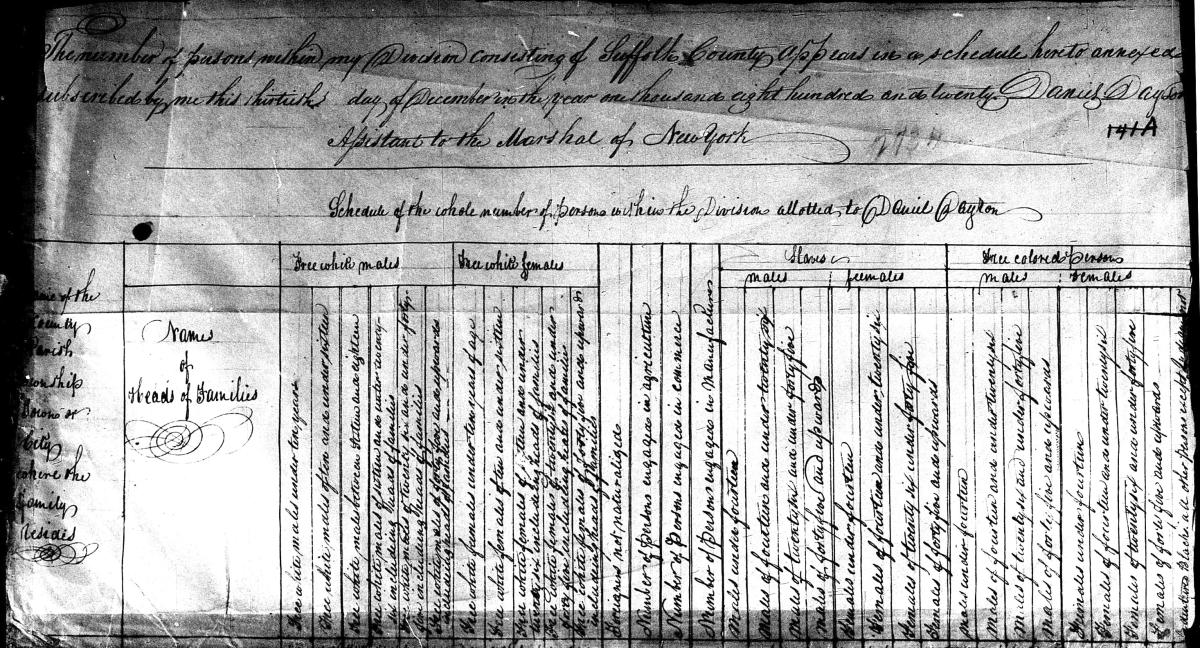 The number of persons within my Division consisting of Suffolk County appears in a schedule hereto annexed
subscribed by me this thirtieth day of December in the year one thousand eight hundred and twenty Daniel Dayton
Assistant to the Marshal of New York
141A
Schedule of the whole number of Persons within the Division allotted to Daniel Dayton
Name of the
County
Parish
Township
Towns or
City
where the
Family
Resides
Name
of
Heads of Families
Free white males
Free white males under ten years
Free white males of ten and under sixteen
Free white males between sixteen and eighteen
Free white males of sixteen and under twenty-
six including heads of families
Free white males of twenty six and under forty-
five including heads of families
including heads of families
Free white females
Free white females under ten years of age
Free white females of ten and under sixteen
Free white females of sixteen and under
twenty six including heads of families
Free white females of twenty six and under
forty five including heads of families
Free white females of forty five and upwards
including heads of families
Foreigners not naturalized
Number of Persons engaged in agriculture
Number of Persons engaged in commerce
Number of Persons engaged in manufactures
Slaves
males
Males under fourteen
Males of fourteen and under twenty six
Males of twenty six and under forty five
Males of forty five and upwards
females
Females under fourteen
Females of fourteen and under twenty six
Females of twenty six and under forty five
Females of forty five and upwards
Free colored persons
males
males under fourteen
Males of fourteen and under twenty six
Males of twenty six and under forty five
Males of forty five and upwards
Females
Females under fourteen
Females of fourteen and under twenty six
Females of twenty six and under forty five
Females of forty five and upward